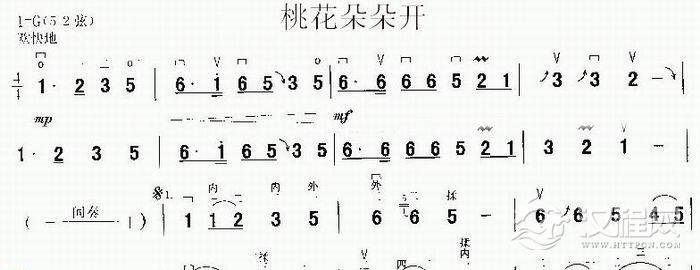 桃花朵朵开
1-G(5 2弦)
欢快地
1· 2 3 5 | 6· i 6 5 3 5 | 6· 6 6 6 5 2 1 | 3 3 2 - |
mp mf
1· 2 3 5 | 6· i 6 5 3 5 | 6· 6 6 6 5 2 1 | 3 2 1 - |
1. 内 内 外 外 揉
( - 间奏 - | ) | 1 1 2 3 5 | 6 6 5 - | 6 6 5 4 5 |
汉程网
HTTPCN.COM
揉
四 内